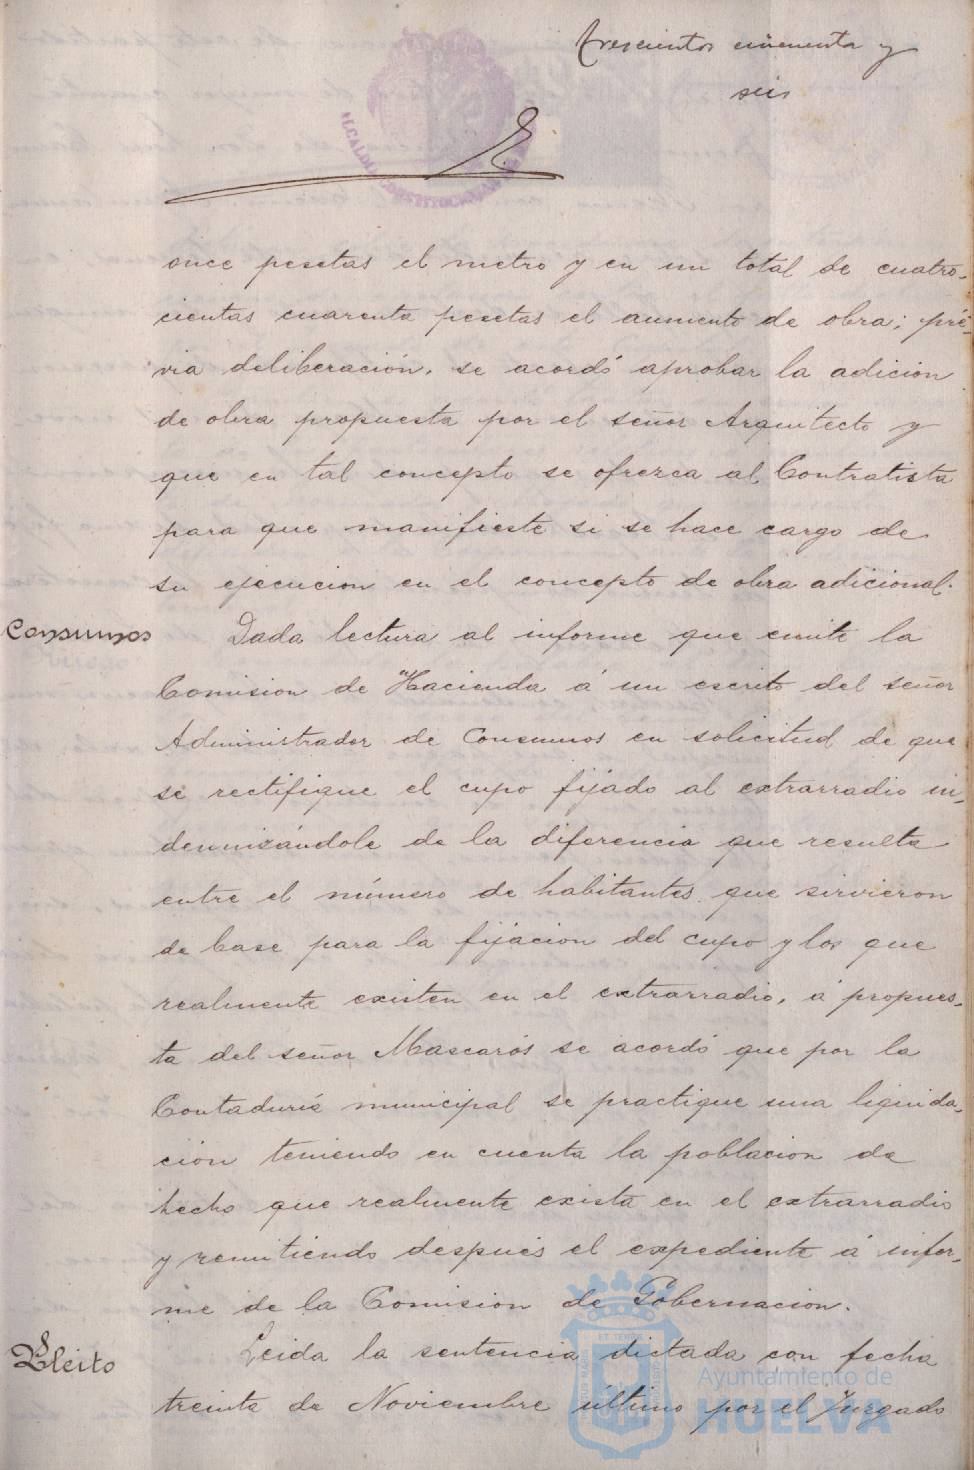 trescientos cincuenta y
seis
ALCALDIA CONSTITUCIONAL
once pesetas el metro y en un total de cuatro-
cientas cuarenta pesetas el aumento de obra; pré-
via deliberación, se acordó aprobar la adicion
de obra propuesta por el señor Arquitecto y
que en tal concepto se ofrezca al Contratista
para que manifieste si se hace cargo de
su ejecucion en el concepto de obra adicional.
Consumos Dada lectura al informe que emite la
Comision de Hacienda á un escrito del señor
Administrador de Consumos en solicitud de que
se rectifique el cupo fijado al extrarradio in-
demnizándole de la diferencia que resulta
entre el número de habitantes que sirvieron
de base para la fijacion del cupo y los que
realmente existen en el extrarradio, á propues-
ta del señor Mascarós se acordó que por la
Contaduría municipal se practique una liquida-
ción teniendo en cuenta la poblacion de
hecho que realmente exista en el extrarradio
y remitiendo después el expediente á infor-
me de la Comision de Gobernacion.
Pleito Leida la sentencia dictada con fecha
treinta de Noviembre último por el Juzgado
Ayuntamiento de
HUELVA